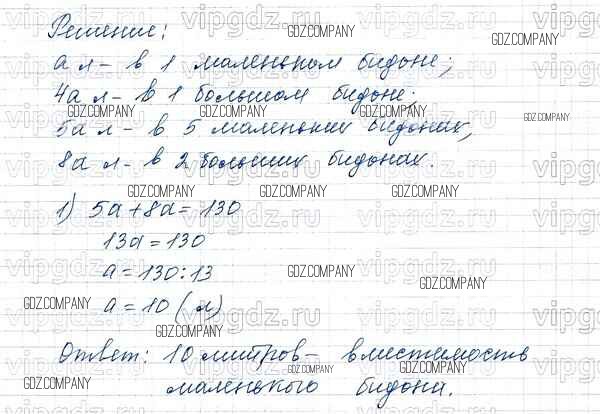 Решение:
а л – в 1 маленьком бидоне;
4а л – в 1 большом бидоне;
5а л – в 5 маленьких бидонах,
8а л – в 2 больших бидонах.
1) 5а + 8а = 130
13а = 130
а = 130 : 13
а = 10 (л)
Ответ: 10 литров – вместимость
маленького бидона.